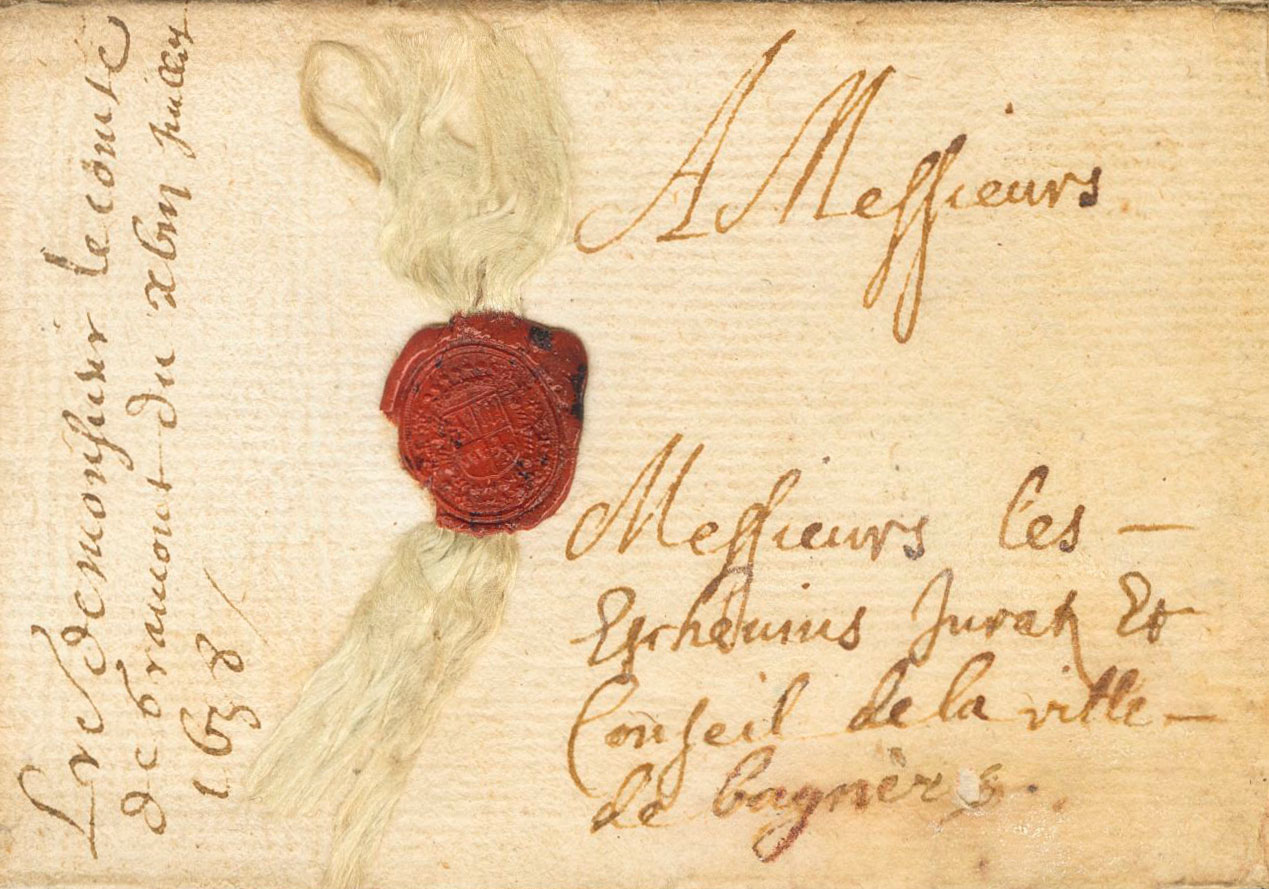 A Messieurs
Messieurs les
Eschevins Juratz Et
Conseil de la ville
de bagnères.
Lre de monsieur le comte
de Gramont du xviij juillet
1638